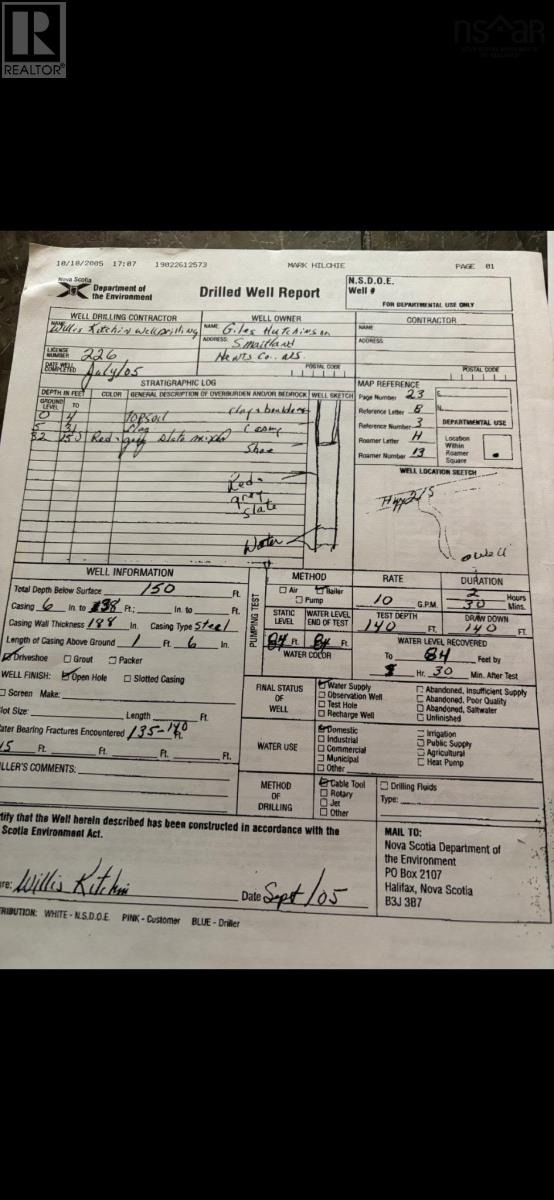 REALTOR®
nsaar
10/18/2005 17:07 19022612573 MARK HILCHIE PAGE 01
Nova Scotia
Department of
the Environment
Drilled Well Report
N.S.D.O.E.
Well #
FOR DEPARTMENTAL USE ONLY
WELL DRILLING CONTRACTOR
NAME Willis Kitchin Well Drilling
LICENSE NUMBER 226
DATE WELL COMPLETED July/05
WELL OWNER
NAME: Giles Hutchinson
ADDRESS: S maitland
Hants Co.. N.S.
POSTAL CODE
CONTRACTOR
NAME
ADDRESS
POSTAL CODE
STRATIGRAPHIC LOG
DEPTH IN FEET COLOR GENERAL DESCRIPTION OF OVERBURDEN AND/OR BEDROCK WELL SKETCH
GROUND LEVEL TO
0 4 Topsoil clay & boulders
5 31 Clay Casing
32 150 Red & grey slate mixed
Shoe
Red &
grey
slate
Water
MAP REFERENCE
Page Number 23
Reference Letter B
Reference Number 3
Roamer Letter H
Roamer Number 13
E
N
DEPARTMENTAL USE
Location
Within
Roamer
Square
WELL LOCATION SKETCH
Hyw 215
o well
WELL INFORMATION
Total Depth Below Surface 150 Ft.
Casing 6 In. to 38 Ft.; In. to Ft.
Casing Wall Thickness 188 In. Casing Type Steel
Length of Casing Above Ground 1 Ft. 6 In.
Driveshoe Grout Packer
WELL FINISH: Open Hole Slotted Casing
Screen Make:
lot Size: Length Ft.
ater Bearing Fractures Encountered 135-140 Ft.
15 Ft. Ft. Ft. Ft.
ILLER'S COMMENTS:
PUMPING TEST
METHOD
Air Bailer
Pump
RATE
10 G.P.M.
DURATION
2 Hours
30 Mins.
STATIC LEVEL
84 Ft.
WATER LEVEL END OF TEST
84 Ft.
TEST DEPTH
140 FT.
DRAW DOWN
140 FT.
WATER COLOR
WATER LEVEL RECOVERED
To 84 Feet by
Hr. 30 Min. After Test
FINAL STATUS OF WELL
Water Supply
Observation Well
Test Hole
Recharge Well
Abandoned, Insufficient Supply
Abandoned, Poor Quality
Abandoned, Saltwater
Unfinished
WATER USE
Domestic
Industrial
Commercial
Municipal
Other
Irrigation
Public Supply
Agricultural
Heat Pump
METHOD OF DRILLING
Cable Tool
Rotary
Jet
Other
Drilling Fluids
Type:
tify that the Well herein described has been constructed in accordance with the
Scotia Environment Act.
re: Willis Kitchin
Date Sept/05
MAIL TO:
Nova Scotia Department of
the Environment
PO Box 2107
Halifax, Nova Scotia
B3J 3B7
TRIBUTION: WHITE - N.S.D.O.E. PINK - Customer BLUE - Driller